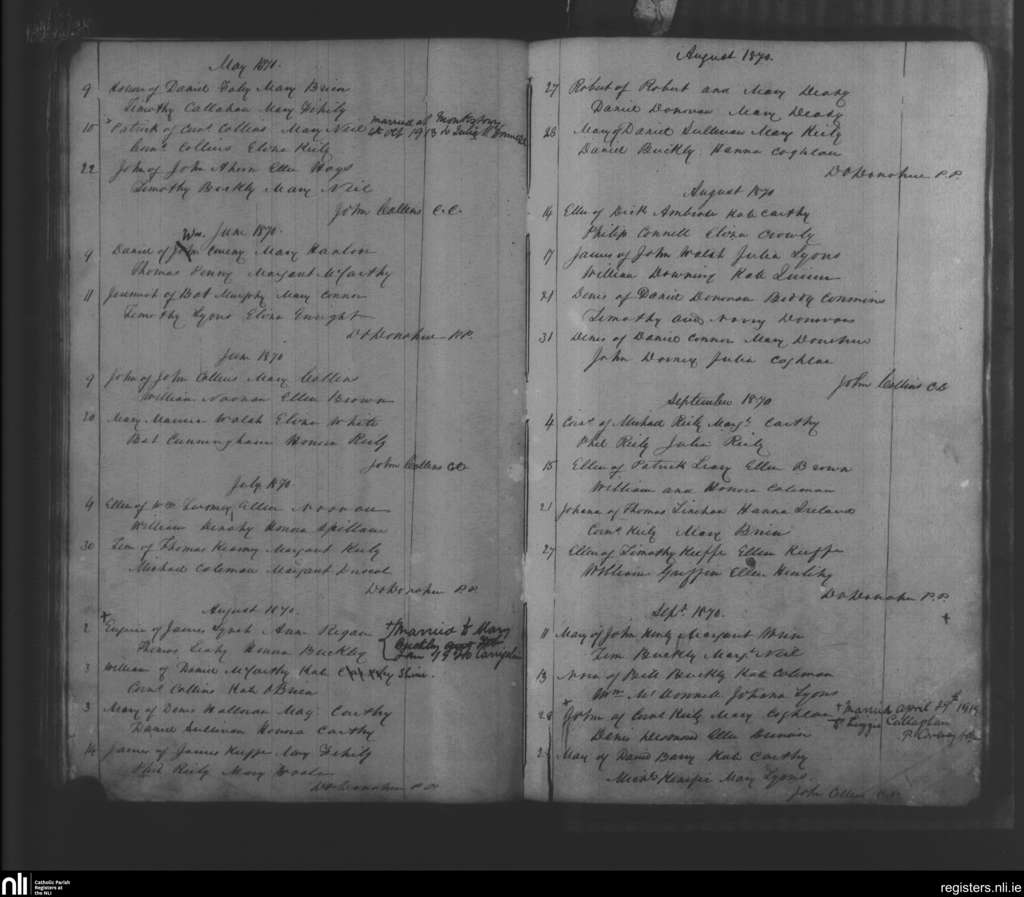 May 1870.
9 Honora of Daniel Foley Mary Brien
Timothy Callahan Mary Fehily
15 + Patrick of Corns Collins Mary Neil married at Monkstown
Corns Collins Eliza Riely 1913 to Julia
22 John of John Ahern Ellen Hays
Timothy Buckly Mary Neil
John Collins C.C.
Wm. June 1870.
9 Daniel of John Mary Hanlon
Thomas Penny Margaret McCarthy
11 Jeremiah of Bat Murphy Mary Connor
Timothy Lyons Eliza Enright
D O'Donohue P.P.
June 1870
9 John of John Collins Mary Collins
William Noonan Ellen Brown
20 Mary Maurice Walsh Eliza White
Bat Cunningham Honora Riely
John Collins CC
July 1870
4 Ellen of Wm Twomey Ellen Noonan
William Honora Spillane
30 Tim of Thomas Kearny Margaret Riely
Michael Coleman Margaret Driscol
D O'Donohue P.P.
August 1870.
2 + Eugene of James Lynch Anne Regan + Married to Mary
Thomas Leahy Hanna Buckley Buckley
3 William of Daniel McCarthy Kate Shine.
Corns Collins Kate O'Brien
3 Mary of Denis Halloran Mary Carthy
Daniel Sullivan Honora Carthy
14 James of James Keeffe Mary Fehily
Phil Riely Mary
D O'Donohue P.P.
August 1870.
27 Robert of Robert and Mary Deasy
Daniel Donovan Mary Deasy
28 Mary of Daniel Sullivan Mary Riely
Daniel Buckly Hanna Coghlan
D O'Donohue P.P.
August 1870
14 Ellen of Dick Ambrose Kate Carthy
Philip Connell Eliza Crowly
17 James of John Walsh Julia Lyons
William Downing Kate Quinn
21 Denis of Daniel Donovan Biddy Commins
Timothy and Norry Donovan
31 Denis of Daniel Connor Mary Donohue
John Dorney Julia Coghlan
John Collins CC
September 1870
4 Corns of Michael Riely Margt Carthy
Phil Riely Julia Riely
15 Ellen of Patrick Leary Ellen Brown
William and Honora Coleman
21 Johana of Thomas Linehan Hanna Ireland
Corns Riely Mary Brien
27 Ellen of Timothy Keeffe Ellen Keeffe
William Griffin Ellen
D O'Donohue P.P.
Sept. 1870.
11 Mary of John Riely Margaret Brien
Tim Buckly Margt Neil
13 Nora of Buckly Kate Coleman
Wm McDonnell Johana Lyons
+ John of Corns Riely Mary Coghlan + Married April 29th 1919
Denis Desmond Ellen to Lizzie Callaghan
Mary of David Barry Kate Carthy
Michl Mary Lyons.
John Collins CC
nli Catholic Parish
Registers at
the NLI
registers.nli.ie